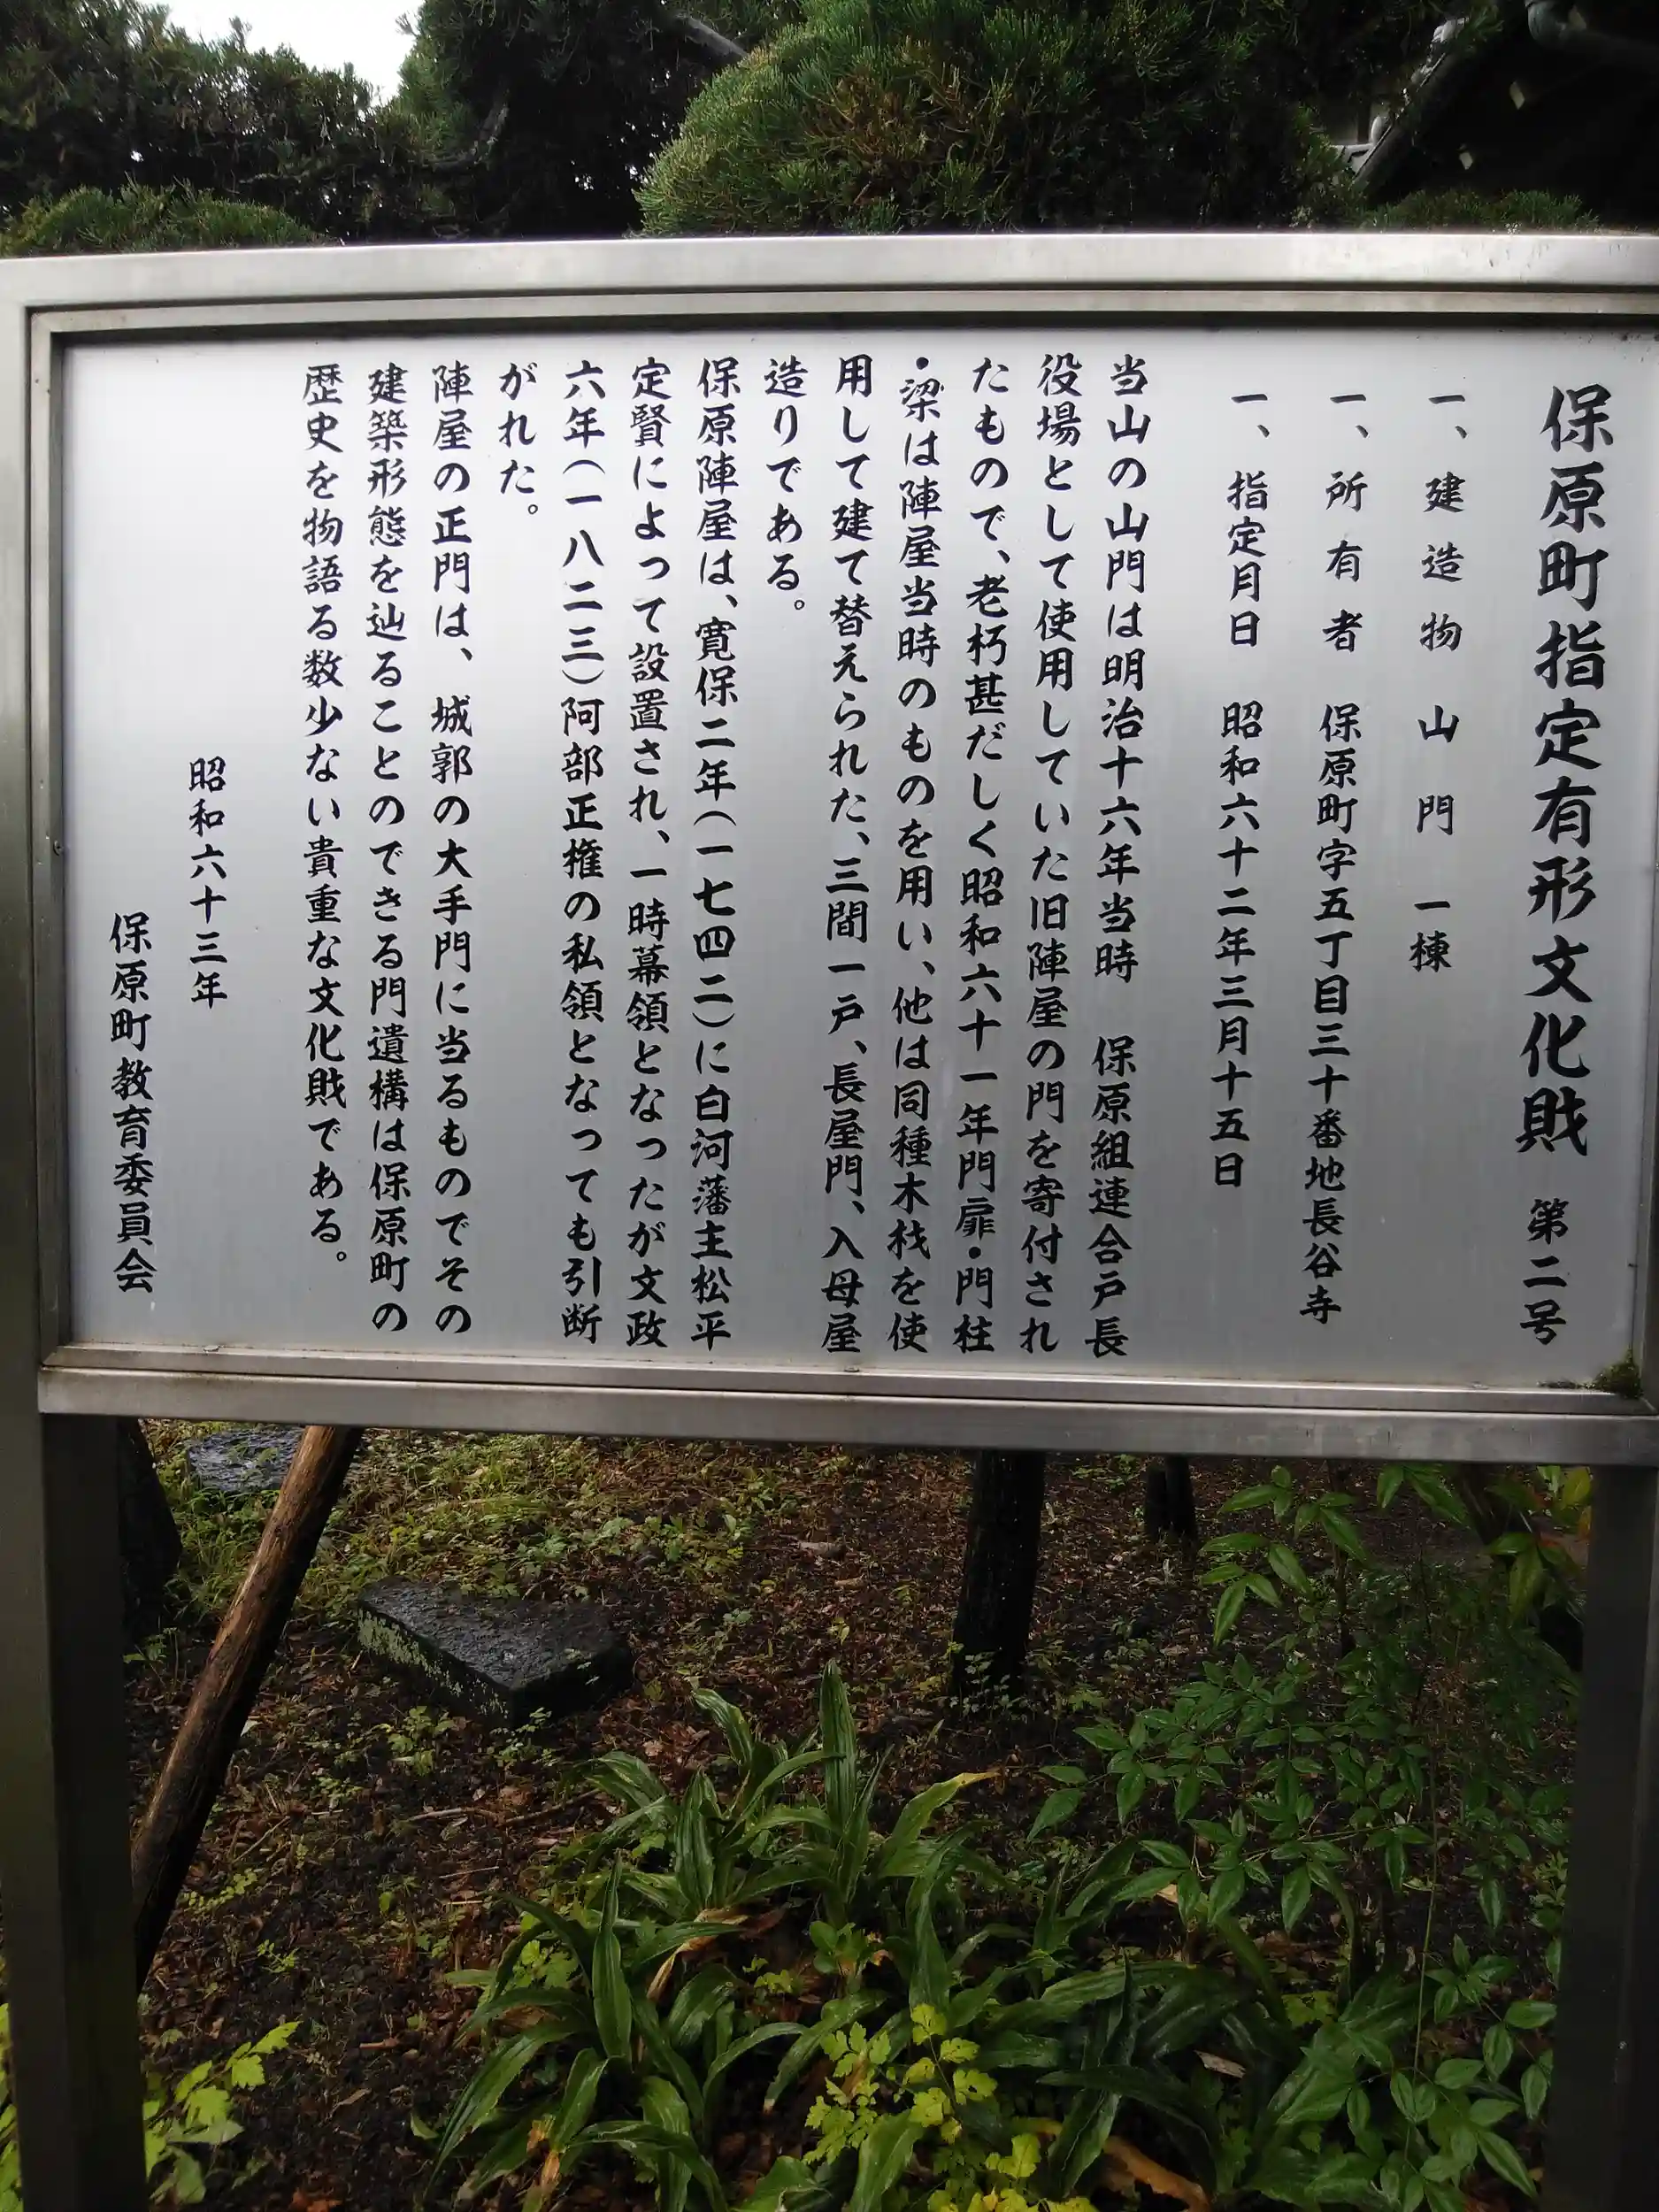 保原町指定有形文化財 第二号
一、建造物 山門 一棟
一、所有者 保原町字五丁目三十番地長谷寺
一、指定月日 昭和六十二年三月十五日
当山の山門は明治十六年当時 保原組連合戸長
役場として使用していた旧陣屋の門を寄付され
たもので、老朽甚だしく昭和六十一年門扉・門柱
・梁は陣屋当時のものを用い、他は同種木材を使
用して建て替えられた、三間一戸、長屋門、入母屋
造りである。
保原陣屋は、寛保二年(一七四二)に白河藩主松平
定賢によって設置され、一時幕領となったが文政
六年(一八二三)阿部正権の私領となっても引断
がれた。
陣屋の正門は、城郭の大手門に当るものでその
建築形態を辿ることのできる門遺構は保原町の
歴史を物語る数少ない貴重な文化財である。
昭和六十三年
保原町教育委員会